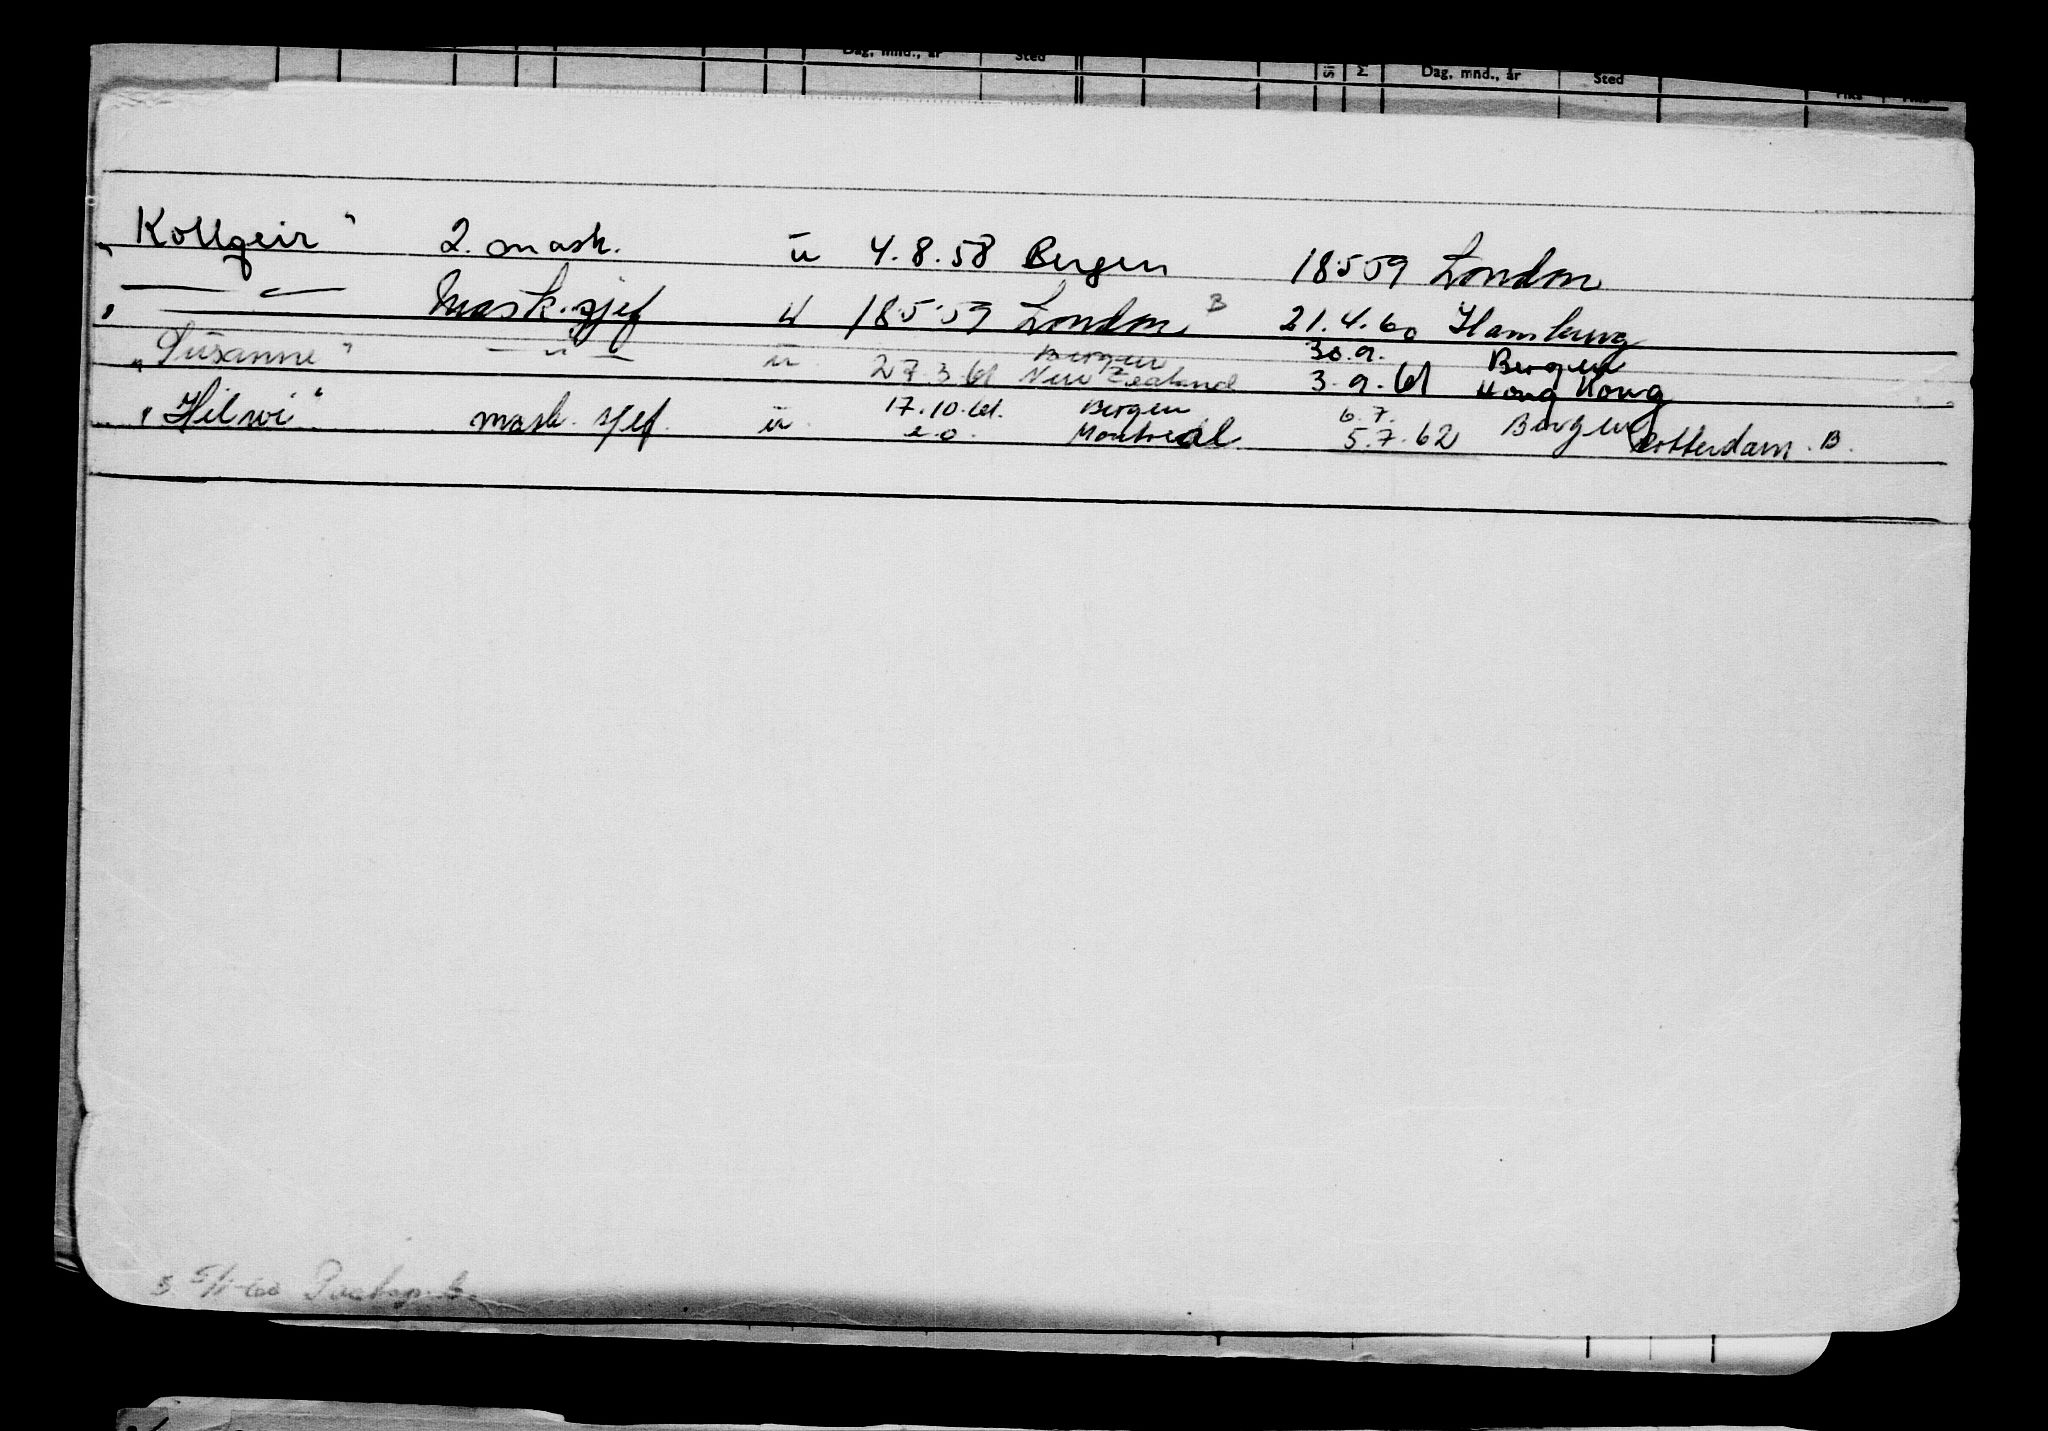 Dag, mnd., år Sted Dag, mnd., år Sted
„Kollgeir" 2. mask. u 4.8.58 Bergen 18.5.59 London
„ — " — Mask.sjef u 18.5.59 London B 21.4.60 Hamburg
Bergen 30.9. Bergen
„Susanne" — " — u 27.3.61 New Zealand 3.9.61 Hong Kong
17.10.61. Bergen 6.7. Bergen
„Hilwi" mask.sjef. u e.o. Montreal 5.7.62 Rotterdam. B.
5/1-60